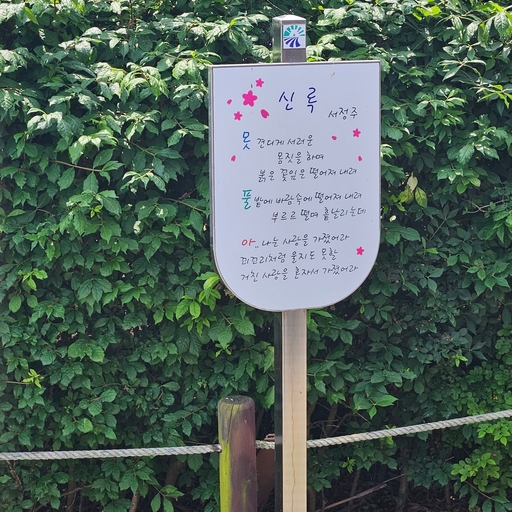 신 록
서정주
못 견디게 서러운
몸짓을 하며
붉은 꽃잎은 떨어져 내려
풀밭에 바람속에 떨어져 내려
부르르 떨며 흩날리는데
아.. 나는 사랑을 가졌어라
꾀꼬리처럼 울지도 못할
거친 사랑을 혼자서 가졌어라